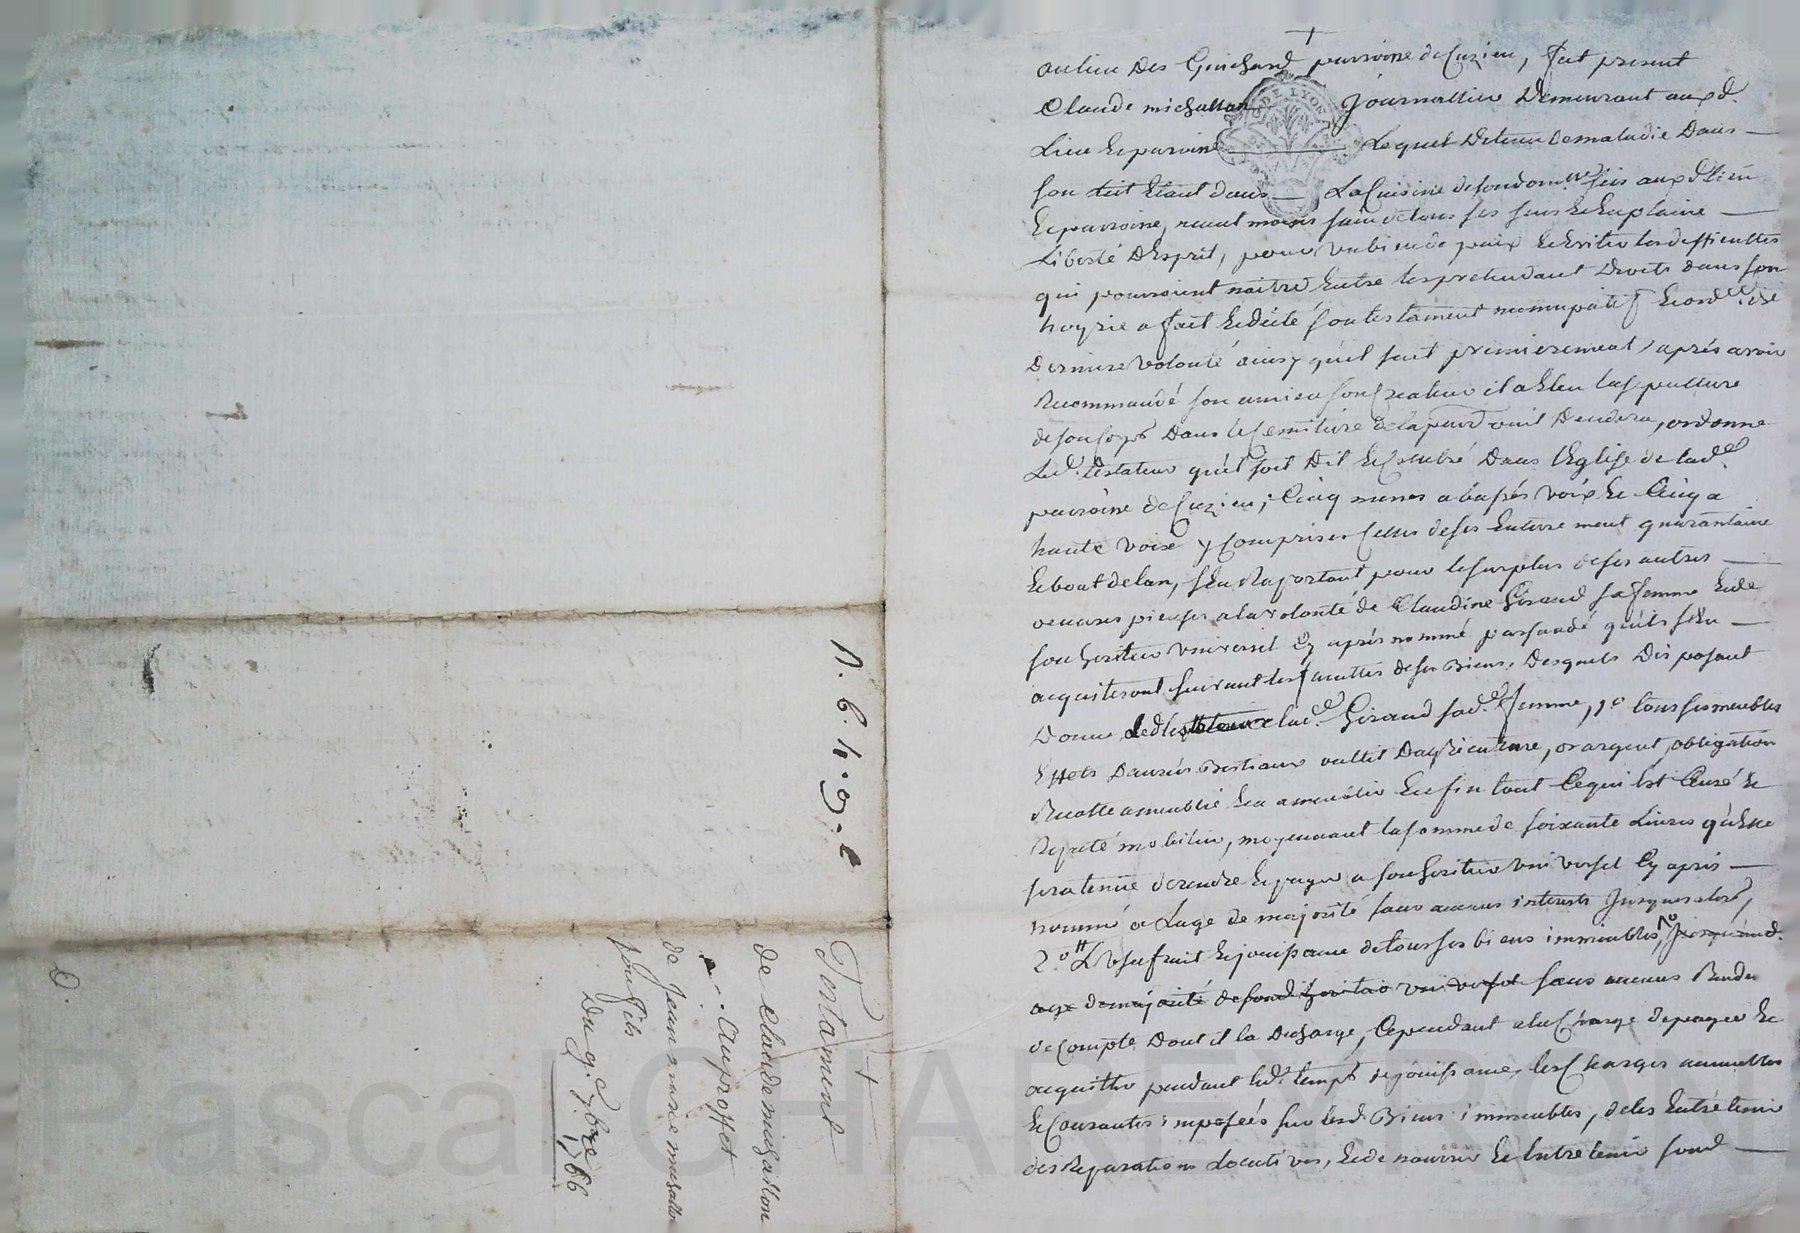 au lieu des Guichard parroisse de Cuzieu, fut present
Claude michallon journallier demeurant aux d.
Lieu & parroisse lequel detenu de maladie dans
son lit étant dans La Cuisine de son dom.lle sis aux d. lieu
& parroisse, neant moins sain de tous ses sens & en plaine
Liberté d'Esprit, pour un bien de paix & Eviter les difficultés
qui pourroient naitre Entre les pretendant droits dans son
hoyrie a fait & dicté son testament nuncupatif & ord.ce de
derniere volonté ainsy qu'il suit premierement, aprés avoir
Recommandé son ame a son Createur il a Eleu la sepulture
de son Corps dans le Cemitiere de la par.
Led. testateur qu'il soit dit & Celebré dans l'Eglise de lad.
parroisse de Cuzieu, Cinq messes a basses voix & Cinq a
haute voix y Comprises Celles de ses Enterrement quarantaine
& bout de l'an, s'En Raportant pour le surplus de ses autres
oeuvres pieuses a la volonté de Claudine Giraud sa femme & de
son heritier universel Cy aprés nommé persuadé qu'ils s'En
acquiteront suivant les facultés de ses Biens, desquels disposant
Donne lad.e Giraud sad.e femme, 1.o tous ses meubles
Effets danrées Bestiaux outils d'agriculture, or argent, obligation
Recolte ameublie & a ameublir Enfin tout Ce qui Est Censé &
Reputé mobilier, moyennant la somme de soixante Livres qu'Elle
sera tenüe de rendre & payer a son heritier universel Cy aprés
nommé a L'age de majorité sans aucuns interests jusques alors,
2.o L'Usufruit & jouissance de tous ses biens immeubles,
age de majorité de sond. heritier universel sans aucuns Rendre
de Compte dont il la décharge, Cependant a la Charge de payer &
acquitter pendant led. temps de jouissance, les Charges annuelles
& Courantes imposées sur lesd. Biens immeubles, de les Entretenir
des Reparations Locatives, & de nourrir & Entretenir sond.
Testament
de claude michallon
au proffet
de Jean
son fils
Du 9. 7bre 1766